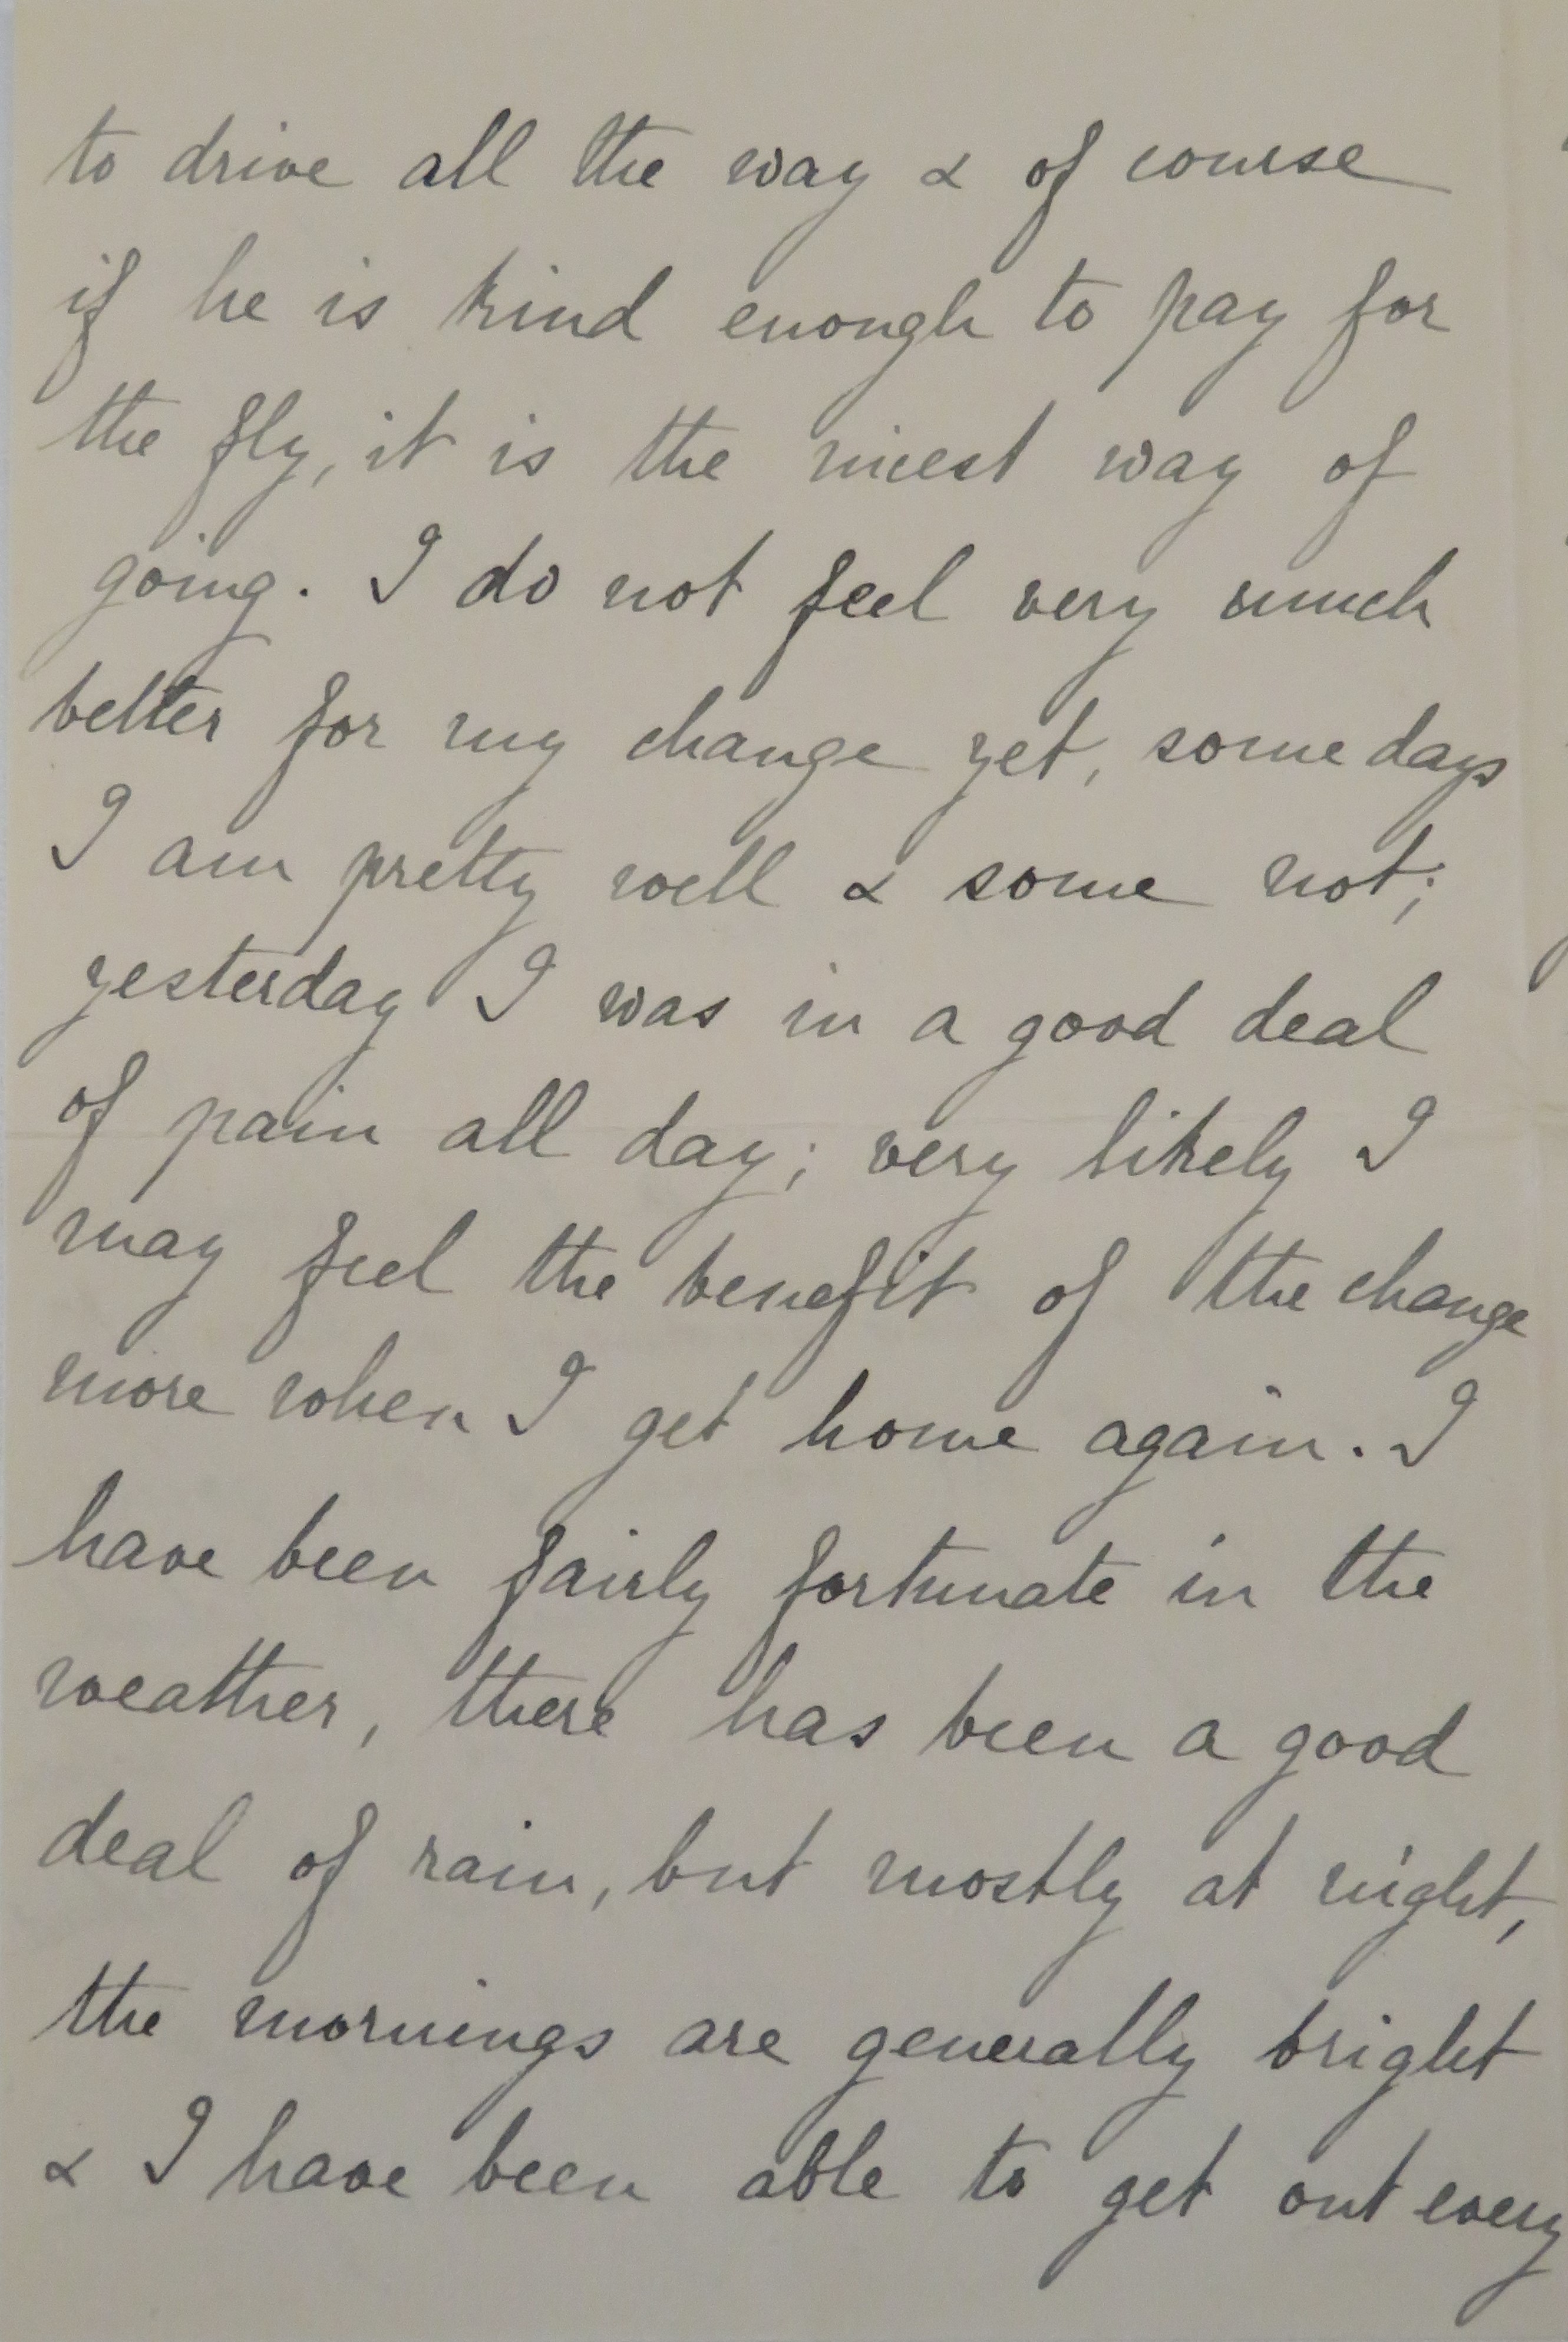 to drive all the way & of course
if he is kind enough to pay for
the fly, it is the nicest way of
going. I do not feel very much
better for my change yet, some days
I am pretty well & some not;
yesterday I was in a good deal
of pain all day; very likely I
may feel the benefit of the change
more when I get home again. I
have been fairly fortunate in the
weather, there has been a good
deal of rain, but mostly at night,
the mornings are generally bright
& I have been able to get out every